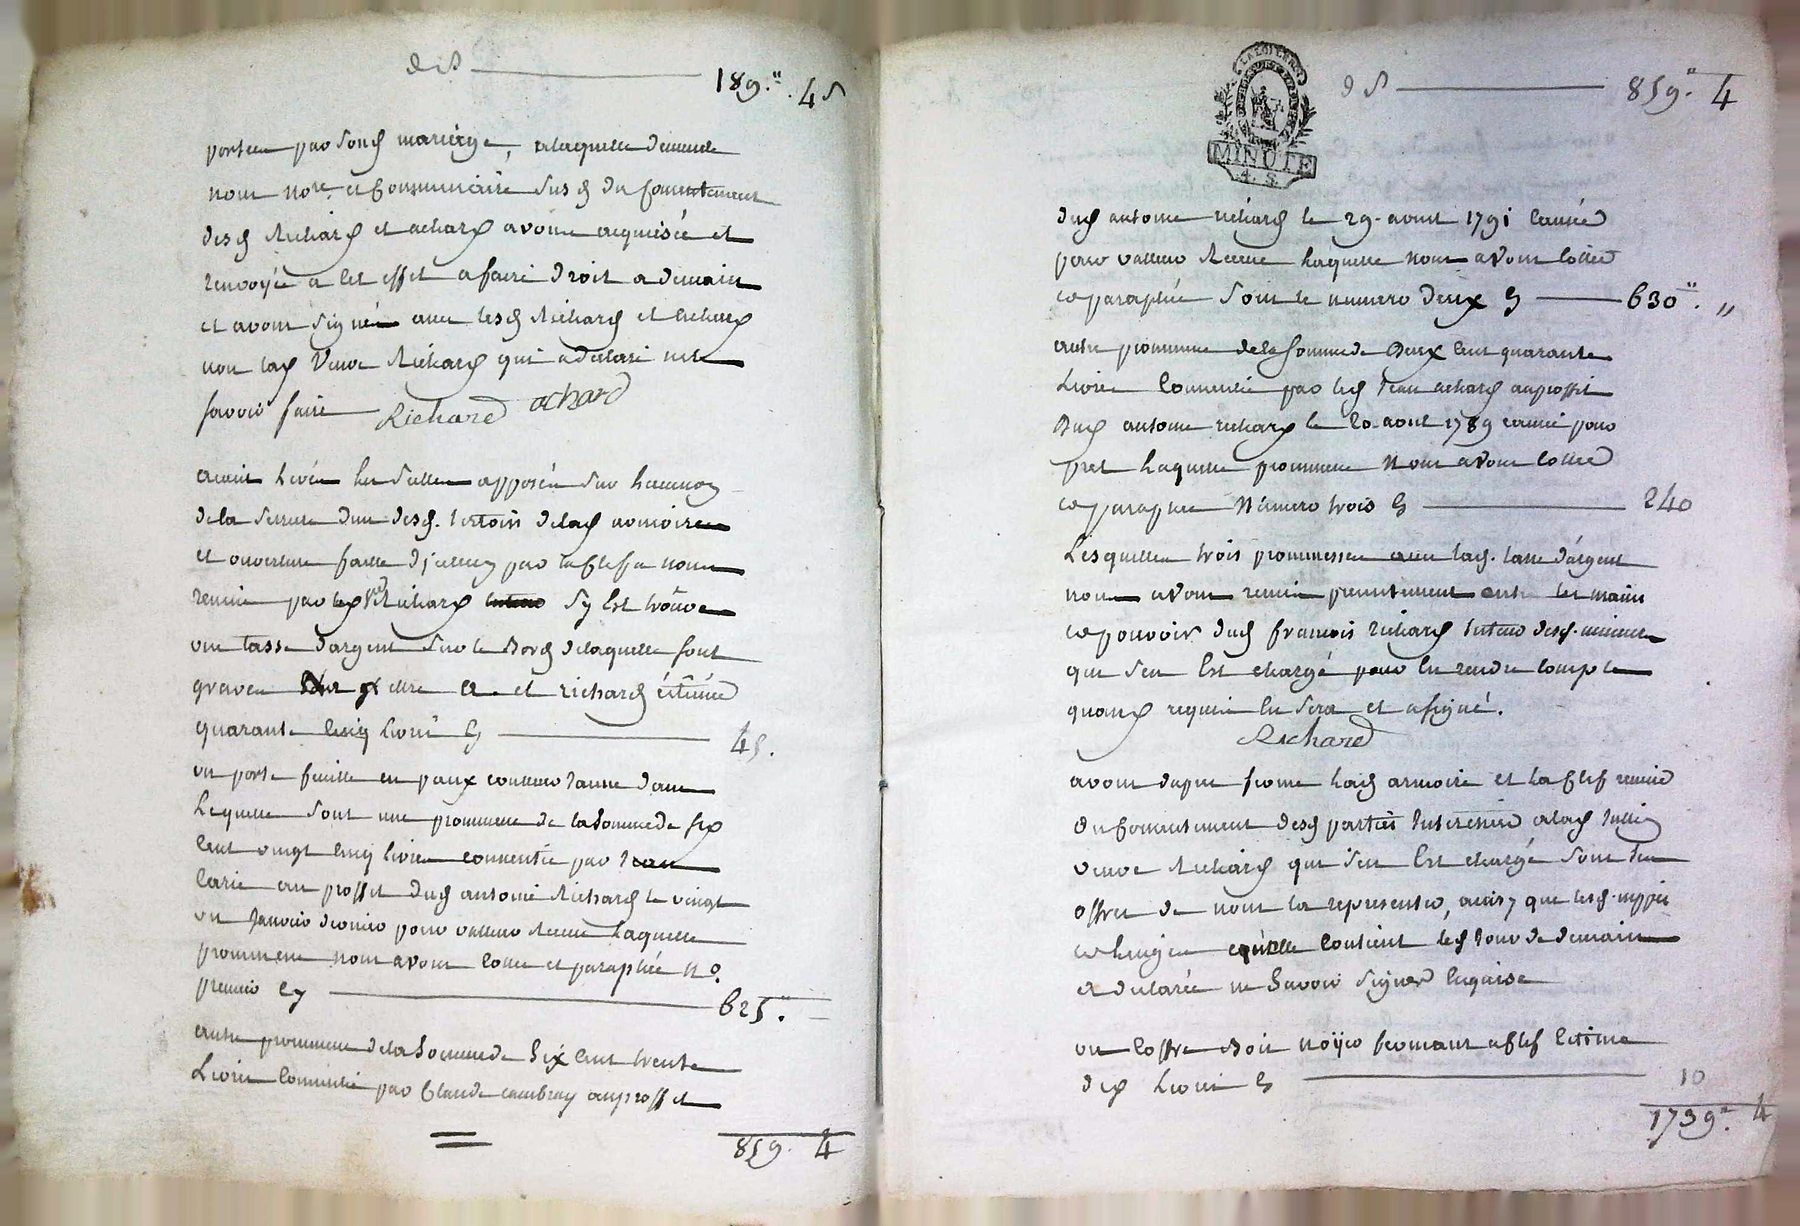 189. 4 s
portée par sond mariage, a laquelle demende
nous nore et Commissaire susd du Consentement
desd Richard et achard avons acquiescé et
renvoyée a cet effet a faire droit a demain
et avons signés avec lesd Richard et achard
non lad Veuve Richard qui a declaré ne le
savoir faire Richard achard
avoir Levée les scellés apposés sur
de la serrure d'un desd. tertoirs de lad armoire
et ouverture faitte d'jcelluy par la Clef a nous
remise par lad Ve Richard sy Est trouvé
une tasse d'argent sur le Bord de laquelle sont
gravée lettre a. et richard éstimée
quarante Cinq Livres Cy 45.
un porte feuille en paux couleur Jaune dans
Lequelle sont une prommesse de la Somme de six
Cent vingt Cinq livres consentie par Jean
Larie au proffit dud antoine Richard le vingt
un Janvier dernier pour valleur Receue Laquelle
prommesse nous avons Cottée et paraphée no.
premier Cy 625.
autre prommesse de la Somme de Six Cent trente
Livres Consentie par Claude cambray au proffit
859. 4
MINUTE
4. S.
ds 859. 4
dud antoine richard le 29. avout 1791 Causée
pour valleur Receue Laquelle nous avons Cottée
et paraphée sous le numero deux Cy 630. "
autre prommesse de la somme de Deux Cent quarante
Livres Consentie par led Jean achard au proffit
Dud antoine richard le 20 aout 1789 causée pour
pret Laquelle prommesse Nous avons Cottée
et paraphée Numero trois Cy 240
Lesquelles trois prommesses avec lad. tasse d'argent
nous avons remis presentement entre les mains
et pouvoir dud françois richard tuteur desd. mineurs
qui s'en Est chargé pour En rendre Compte
quand requis En sera et a signé.
Richard
avons dapres fermé Lad armoire et la Clef remise
du Consentement desd parties Interessées a lad
veuve Richard qui s'en Est chargée sous
offres de nous la representer, ainsy que lesd. nippes
et Linges qu'elle contient led Jour de demain
et declarée ne Savoir signer Enquise
un Coffre Bois noÿer fermant a Clef Estimé
dix Livres Cy 10
1739. 4